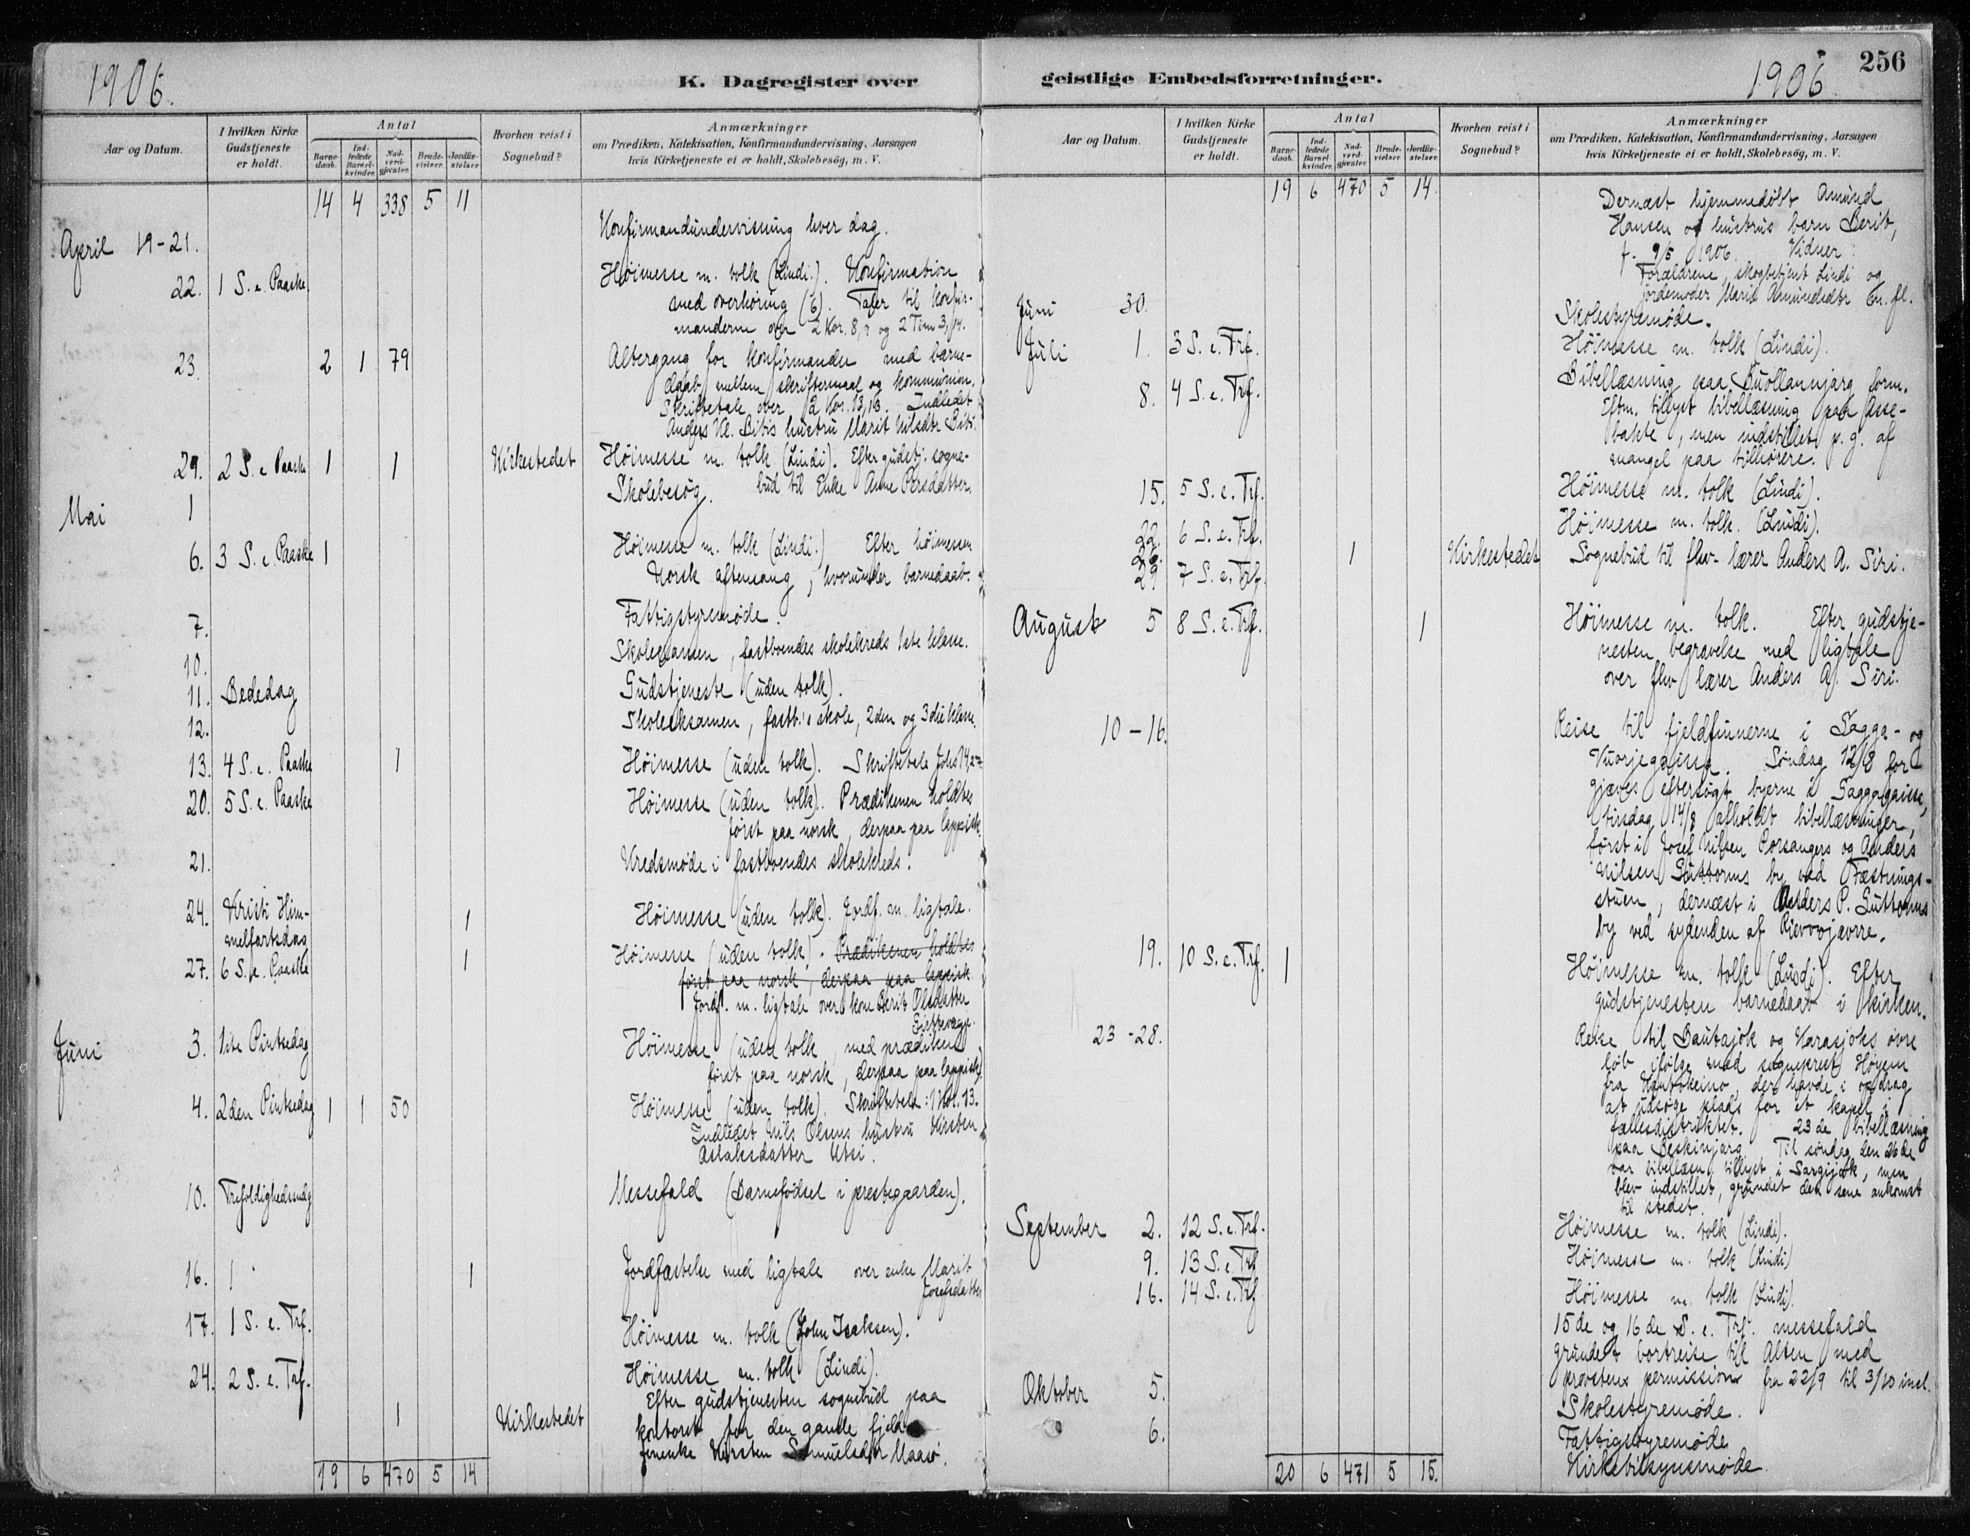 1906.
K. Dagregister over
Aar og Datum.
I hvilken Kirke Gudstjeneste er holdt.
Antal
Barne-daab.
Ind-ledede Barsel-kvinder.
Nad-verd-gjæster.
Brude-vielser.
Jordfæ-stelser.
Hvorhen reist i Sognebud?
Anmærkninger
om Prædiken, Katekisation, Konfirmandundervisning, Aarsagen
hvis Kirketjeneste ei er holdt, Skolebesög, m. V.
14 4 338 5 11
April 19-21. Konfirmandundervisning hver dag.
22. 1 S. e. Paaske Høimesse m. tolk (Lindi). Konfirmation
med overhøring (6). Taler til konfir-
manderne over 2 Kor. 8,9 og 2 Tim 3,14.
23. 2 1 79 Altergang for konfirmander med barne-
daab mellem skriftemaal og kommunion.
Skriftetale over 2 Kor. 13,13. Indledet
Anders Kl. Bitis hustru Marit Nilsdtr Biti.
29. 2 S. e Paaske 1 1 Kirkestedet Høimesse m. tolk (Lindi). Efter gudstj. sogne-
bud til Enke Anne Persdatter.
Mai 1 Skolebesøg.
6. 3 S. e Paaske 1 Høimesse m. tolk (Lindi.) Efter høimessen
Norsk aftensang, hvorunder barnedaab.
7. Fattigstyremøde.
10. Skolexamen, fastboendes skolekreds 1ste klasse.
11. Bededag Gudstjeneste (uden tolk).
12. Skoleeksamen, fastb.'s skole, 2den og 3die klasse.
13. 4 S. e. Paaske 1 Høimesse (uden tolk). Skriftetale Johs 14,27
20. 5 S. e. Paaske Høimesse (uden tolk). Prædikenen holdtes
først paa norsk, derpaa paa lappisk.
21. Kredsmøde i fastboendes skolekreds.
24. Kristi Him-
melfartsdag 1 Høimesse (uden tolk). Jordf. m. ligtale.
27. 6 S. e. Paaske 1 Høimesse (uden tolk). Prædikenen holdtes
først paa norsk, derpaa paa lappisk
Jordf. m. ligtale over kone Berit Olsdatter
Juni 3. 1ste Pintsedag Høimesse (uden tolk, med prædiken
først paa norsk, derpaa paa lappisk)
4. 2den Pintsedag 1 1 50 Høimesse (uden tolk). Skriftetale:
Indledet Nils Olsens hustru Kirsten
Aslaksdatter Utsi.
10. Trefoldighedssndg Messefald (Barnefødsel i prestegaarden).
16. 1 Jordfæstelse med ligtale over enke Marit
Josefsdatter
17. 1 S. e. Trf. Høimesse m. tolk (John Isaksen).
24. 2 S. e. Trf. Høimesse m. tolk (Lindi).
Efter gudstjenesten sognebud paa
1 Kirkestedet kontoret for den gamle fjeld-
finenke Kirsten Samuelsdtr Maasø.
19 6 470 5 14
geistlige Embedsforretninger.
1906
256
Aar og Datum.
I hvilken Kirke Gudstjeneste er holdt.
Antal
Barne-daab.
Ind-ledede Barsel-kvinder.
Nad-verd-gjæster.
Brude-vielser.
Jordfæ-stelser.
Hvorhen reist i Sognebud?
Anmærkninger
om Prædiken, Katekisation, Konfirmandundervisning, Aarsagen
hvis Kirketjeneste ei er holdt, Skolebesög, m. V.
19 6 470 5 14.
Dernæst hjemmedøbt Amund
Hansen og hustrus barn Berit,
f. 9/5 1906. Vidner:
Forældrene, skogbetjent Lindi og
jordemoder Marie Amundsdtr
Juni 30. Skolestyremøde.
Juli 1. 3 S. e. Trf. Høimesse m. tolk (Lindi).
8. 4 S. e. Trf. Bibellæsning paa Buollannjarg form.
Eftm. tillyst bibellæsning paa Asse-
bakte, men indstillet p. g. af
mangel paa tilhørere.
15. 5 S. e. Trf. Høimesse m. tolk (Lindi).
22. 6 S. e. Trf. Høimesse m. tolk. (Lindi).
1 Kirkestedet Sognebud til fhv. lærer Anders A. Siri.
29 7 S. e. Trf.
August 5 8 S. e. Trf. 1 Høimesse m. tolk. Efter gudstje-
nesten begravelse med ligtale
over fhv lærer Anders A. Siri.
10-16. Reise til fjeldfinnerne i Gagga- og
Vuorjegaissa. Søndag 12/8 for-
gjæves eftersøgt byerne i Gaggagaisse,
tirsdag 14/8 afholdt bibellæsninger,
først i Josef Nilsen Porsangers og Anders
Nilsen Guttorms by ved Fæstnings-
stuen, dernæst i Anders P. Guttorms
by ved sydenden af
19. 10 S. e. Trf. 1 Høimesse m. tolk (Lindi). Efter
gudstjenesten barnedaab i kirken.
23-28. Reise til Bautajok og Karasjoks øvre
løb ifølge med sogneprest Høyem
fra Kautokeino, der havde i opdrag
at udsøge plads for et kapel i
fællesdistriktet. 23de bibellæsning
paa Beskinjarg. Til søndag den 26de
var bibellæsn. tillyst i Sargijok, men
blev indstillet, grundet den sene ankomst
til stedet.
September 2. 12 S. e. Trf. Høimesse m. tolk (Lindi).
9. 13 S. e. Trf Høimesse m. tolk (Lindi)
16. 14 S. e. Trf Høimesse m. tolk (Lindi).
15de og 16de S. e. Trf. messefald
grundet bortreise til Alten med
provstens permission fra 22/9 til 3/10 incl.
Oktober 5. Skolestyremøde.
6. Fattigstyremøde
Kirketilsynsmøde.
20 6 471 5 15.